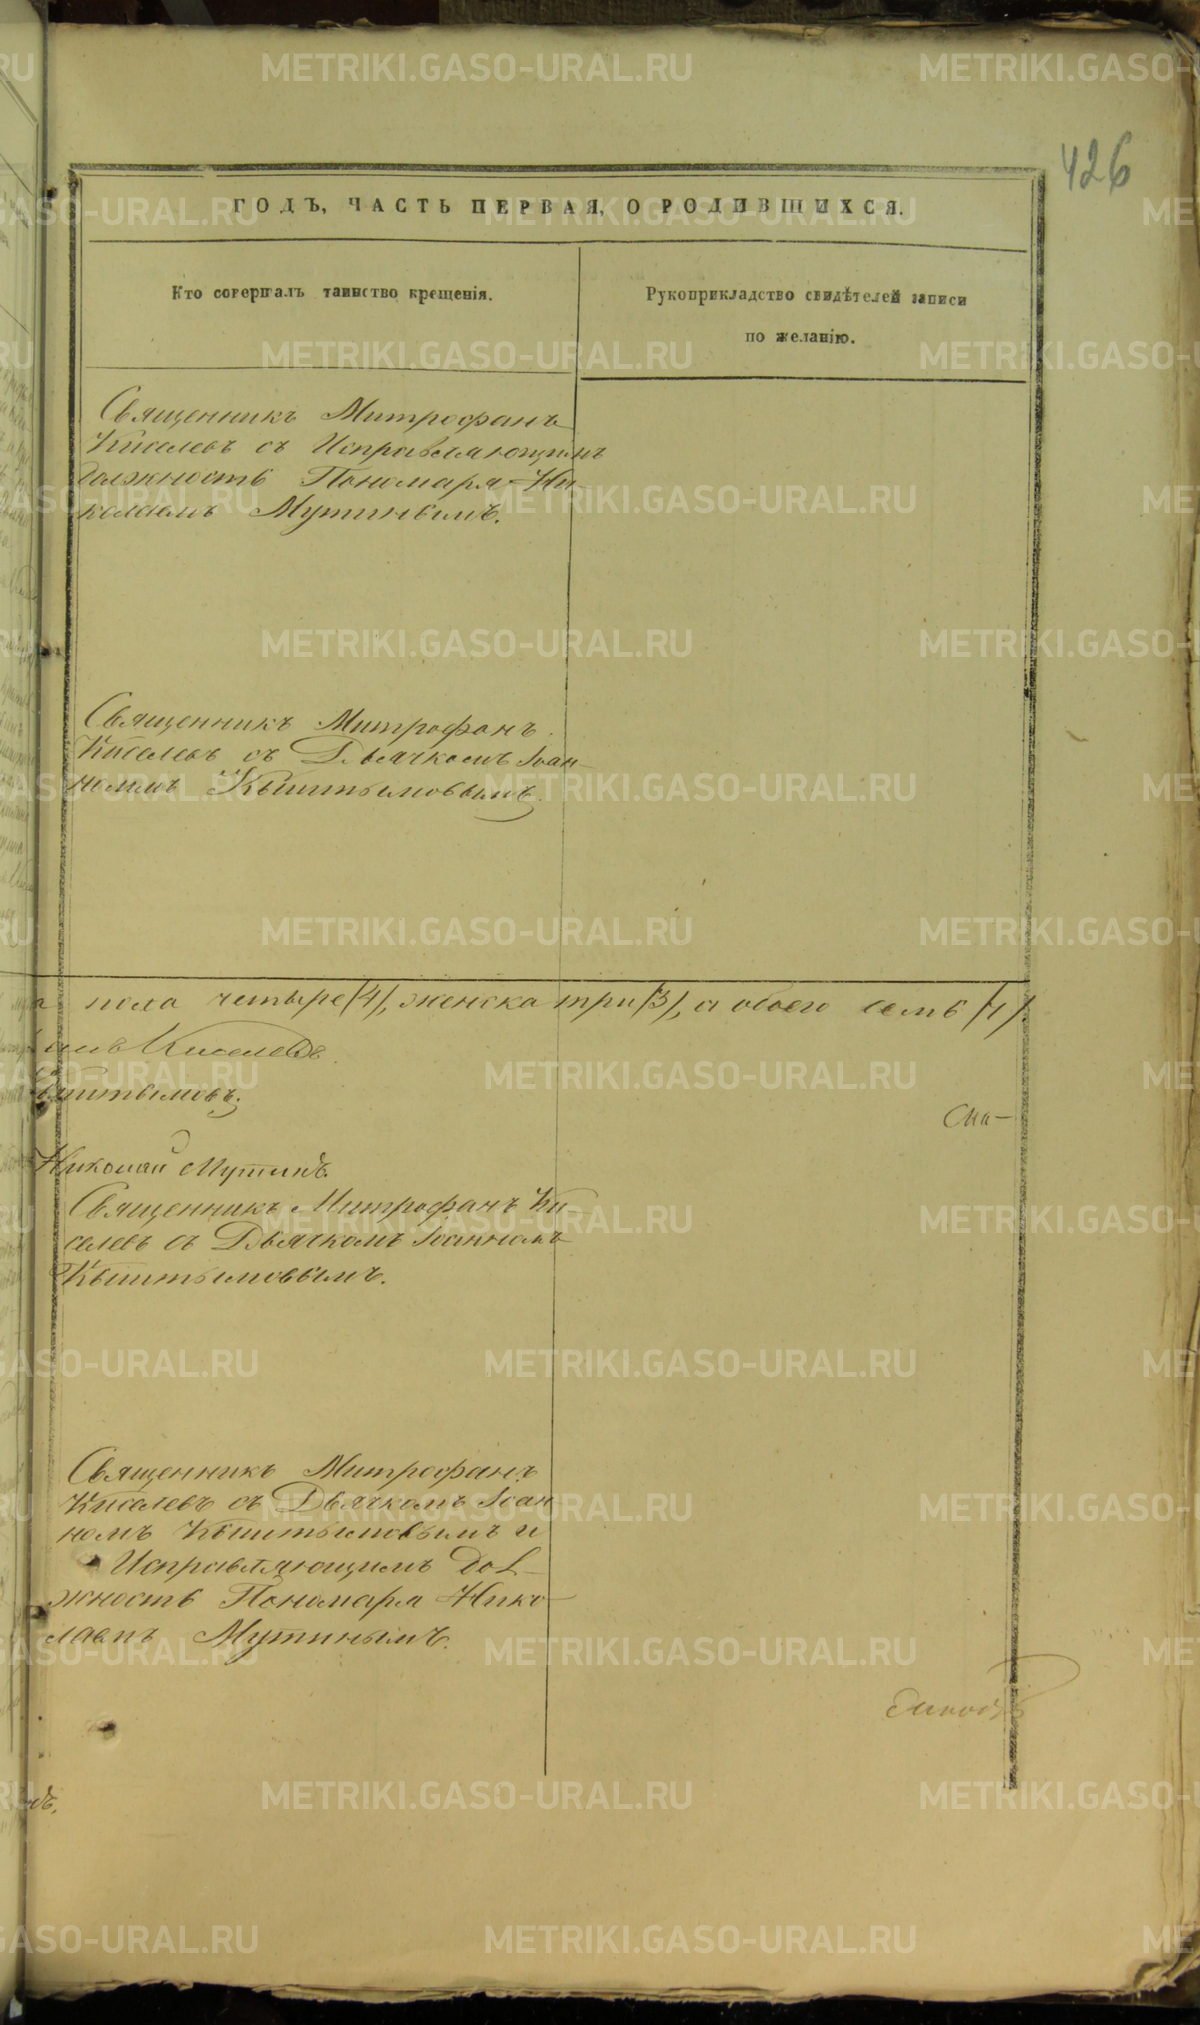 426
ГОДЪ, ЧАСТЬ ПЕРВАЯ, О РОДИВШИХСЯ.
Кто совершалъ таинство крещенія.
Рукоприкладство свидѣтелей записи
по желанію.
Священникъ Митрофанъ
Киселевъ съ Исправляющимъ
должность Пономаря Ни-
колаемъ Мутинымъ.
Священникъ Митрофанъ
Киселевъ съ Дьячкомъ Іоан-
номъ Кыштымовымъ.
пола четыре (4), женска три (3), а обоего семь (7).
Киселевъ
Кыштымовъ.
Сна-
Николай Мутинъ.
Священникъ Митрофанъ Ки-
селевъ съ Дьячкомъ Іоанномъ
Кыштымовымъ.
Священникъ Митрофанъ
Киселевъ съ Дьячкомъ Іоан
номъ Кыштымовымъ и
Исправляющимъ Дол-
жность Пономаря Нико-
лаемъ Мутинымъ.
METRIKI.GASO-URAL.RU